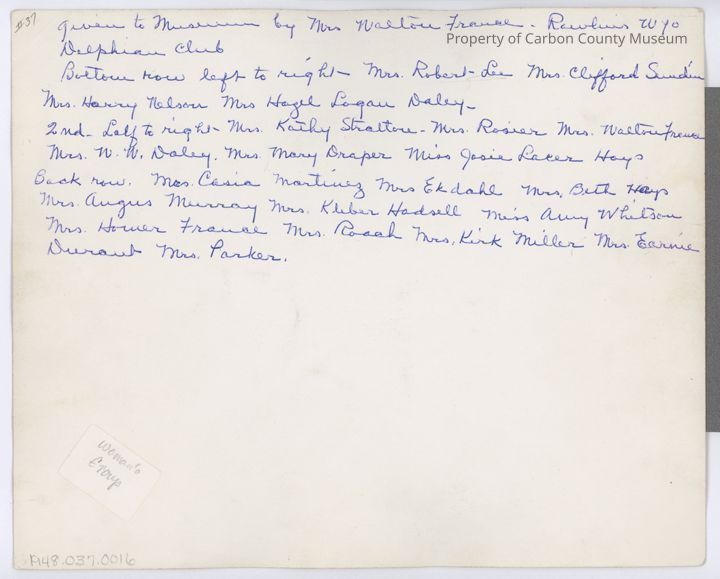 #37
given to Museum by Mrs Walton France - Rawlins Wyo
Property of Carbon County Museum
Delphian Club
Bottom row left to right - Mrs. Robert Lee Mrs. Clifford Sundin
Mrs. Harry Nelson Mrs Hazel Logan Daley -
2nd - Left to right - Mrs. Kathy Stratton - Mrs. Rosier Mrs. Walton France
Mrs. W. W. Daley. Mrs. Mary Draper Miss Josie Hays
Back row. Mrs. Casia Martinez Mrs Ekdahl Mrs. Beth Hays
Mrs. Angus Murray Mrs. Kleber Hadsell Miss Amy Whitson
Mrs. Homer France Mrs. Roach Mrs. Kirk Miller Mrs. Earnie
Durant Mrs. Parker.
Woman's
Group
1948.037.0016